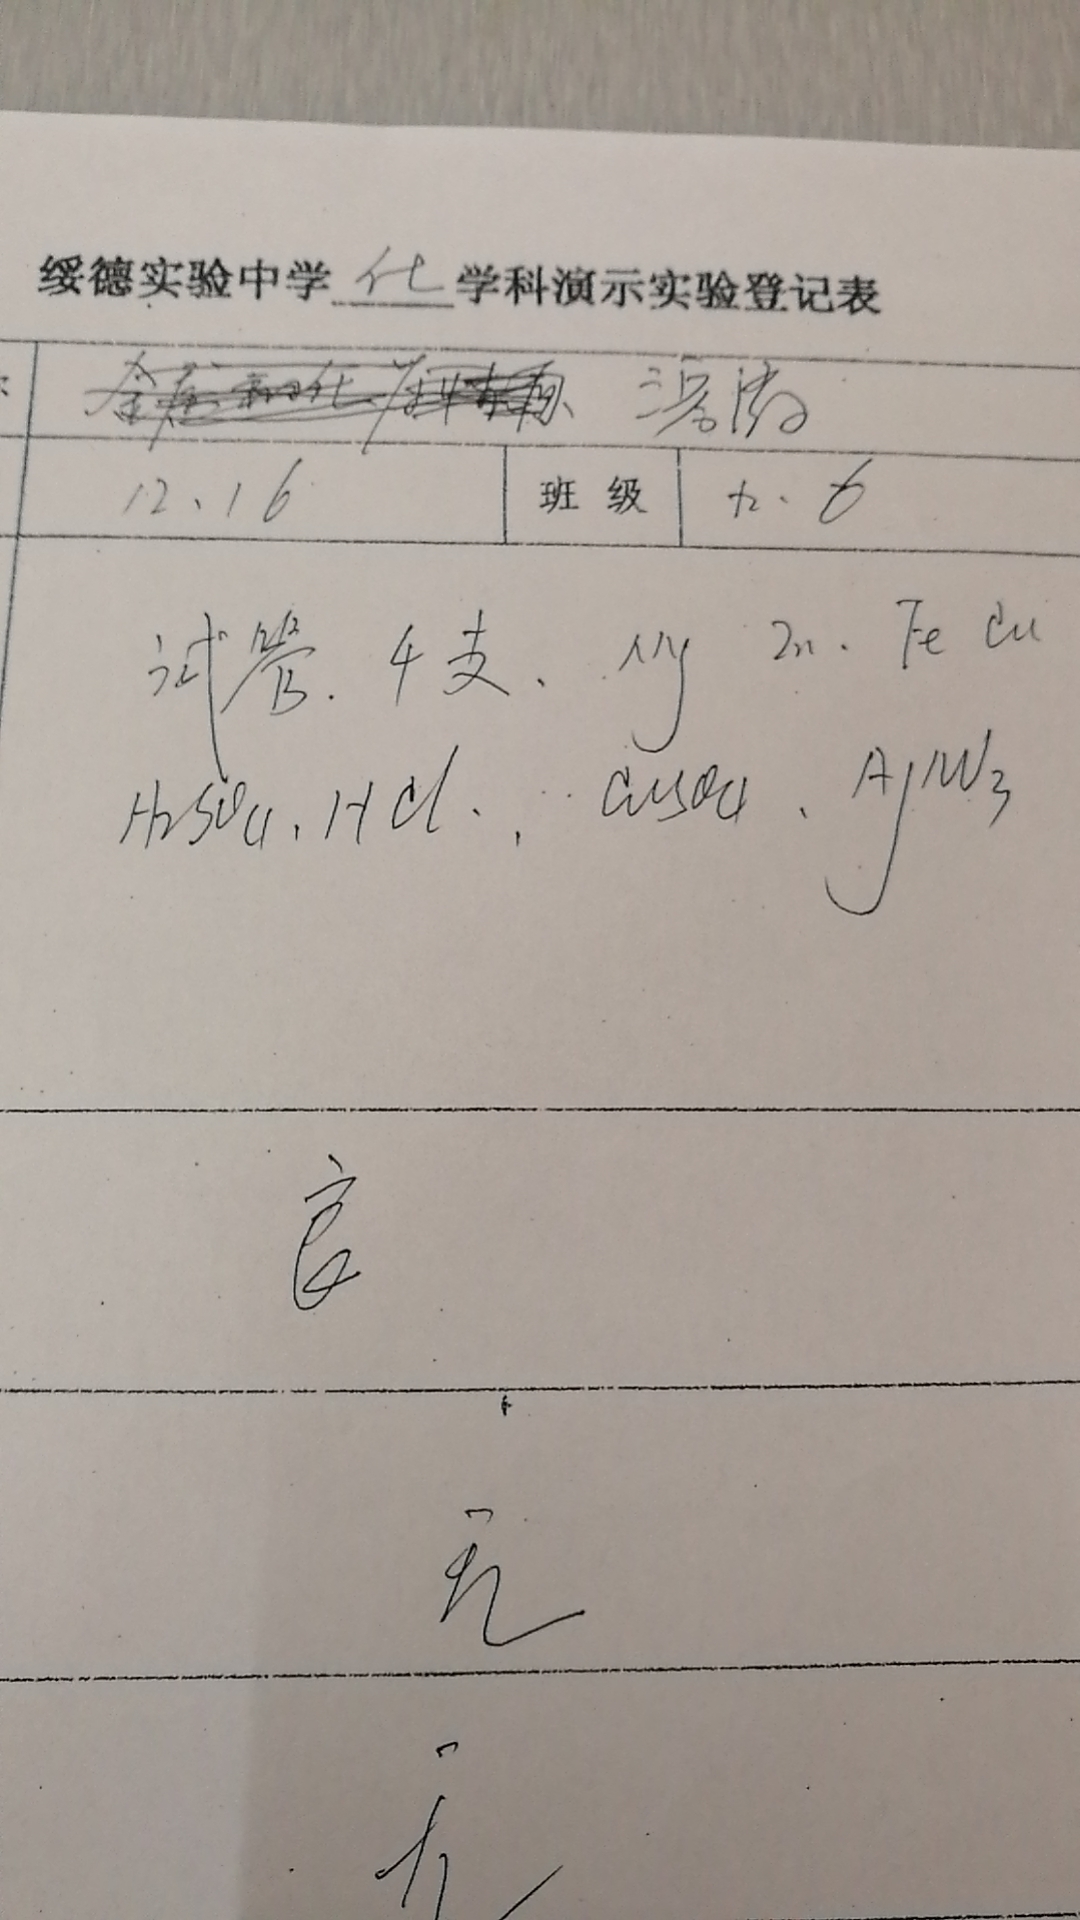 绥德实验中学化学科演示实验登记表
溶液
12.16 班级 九.6
试管.4支、Mg Zn. Fe Cu
H2SO4、HCl、CuSO4、AgNO3
良
无
无